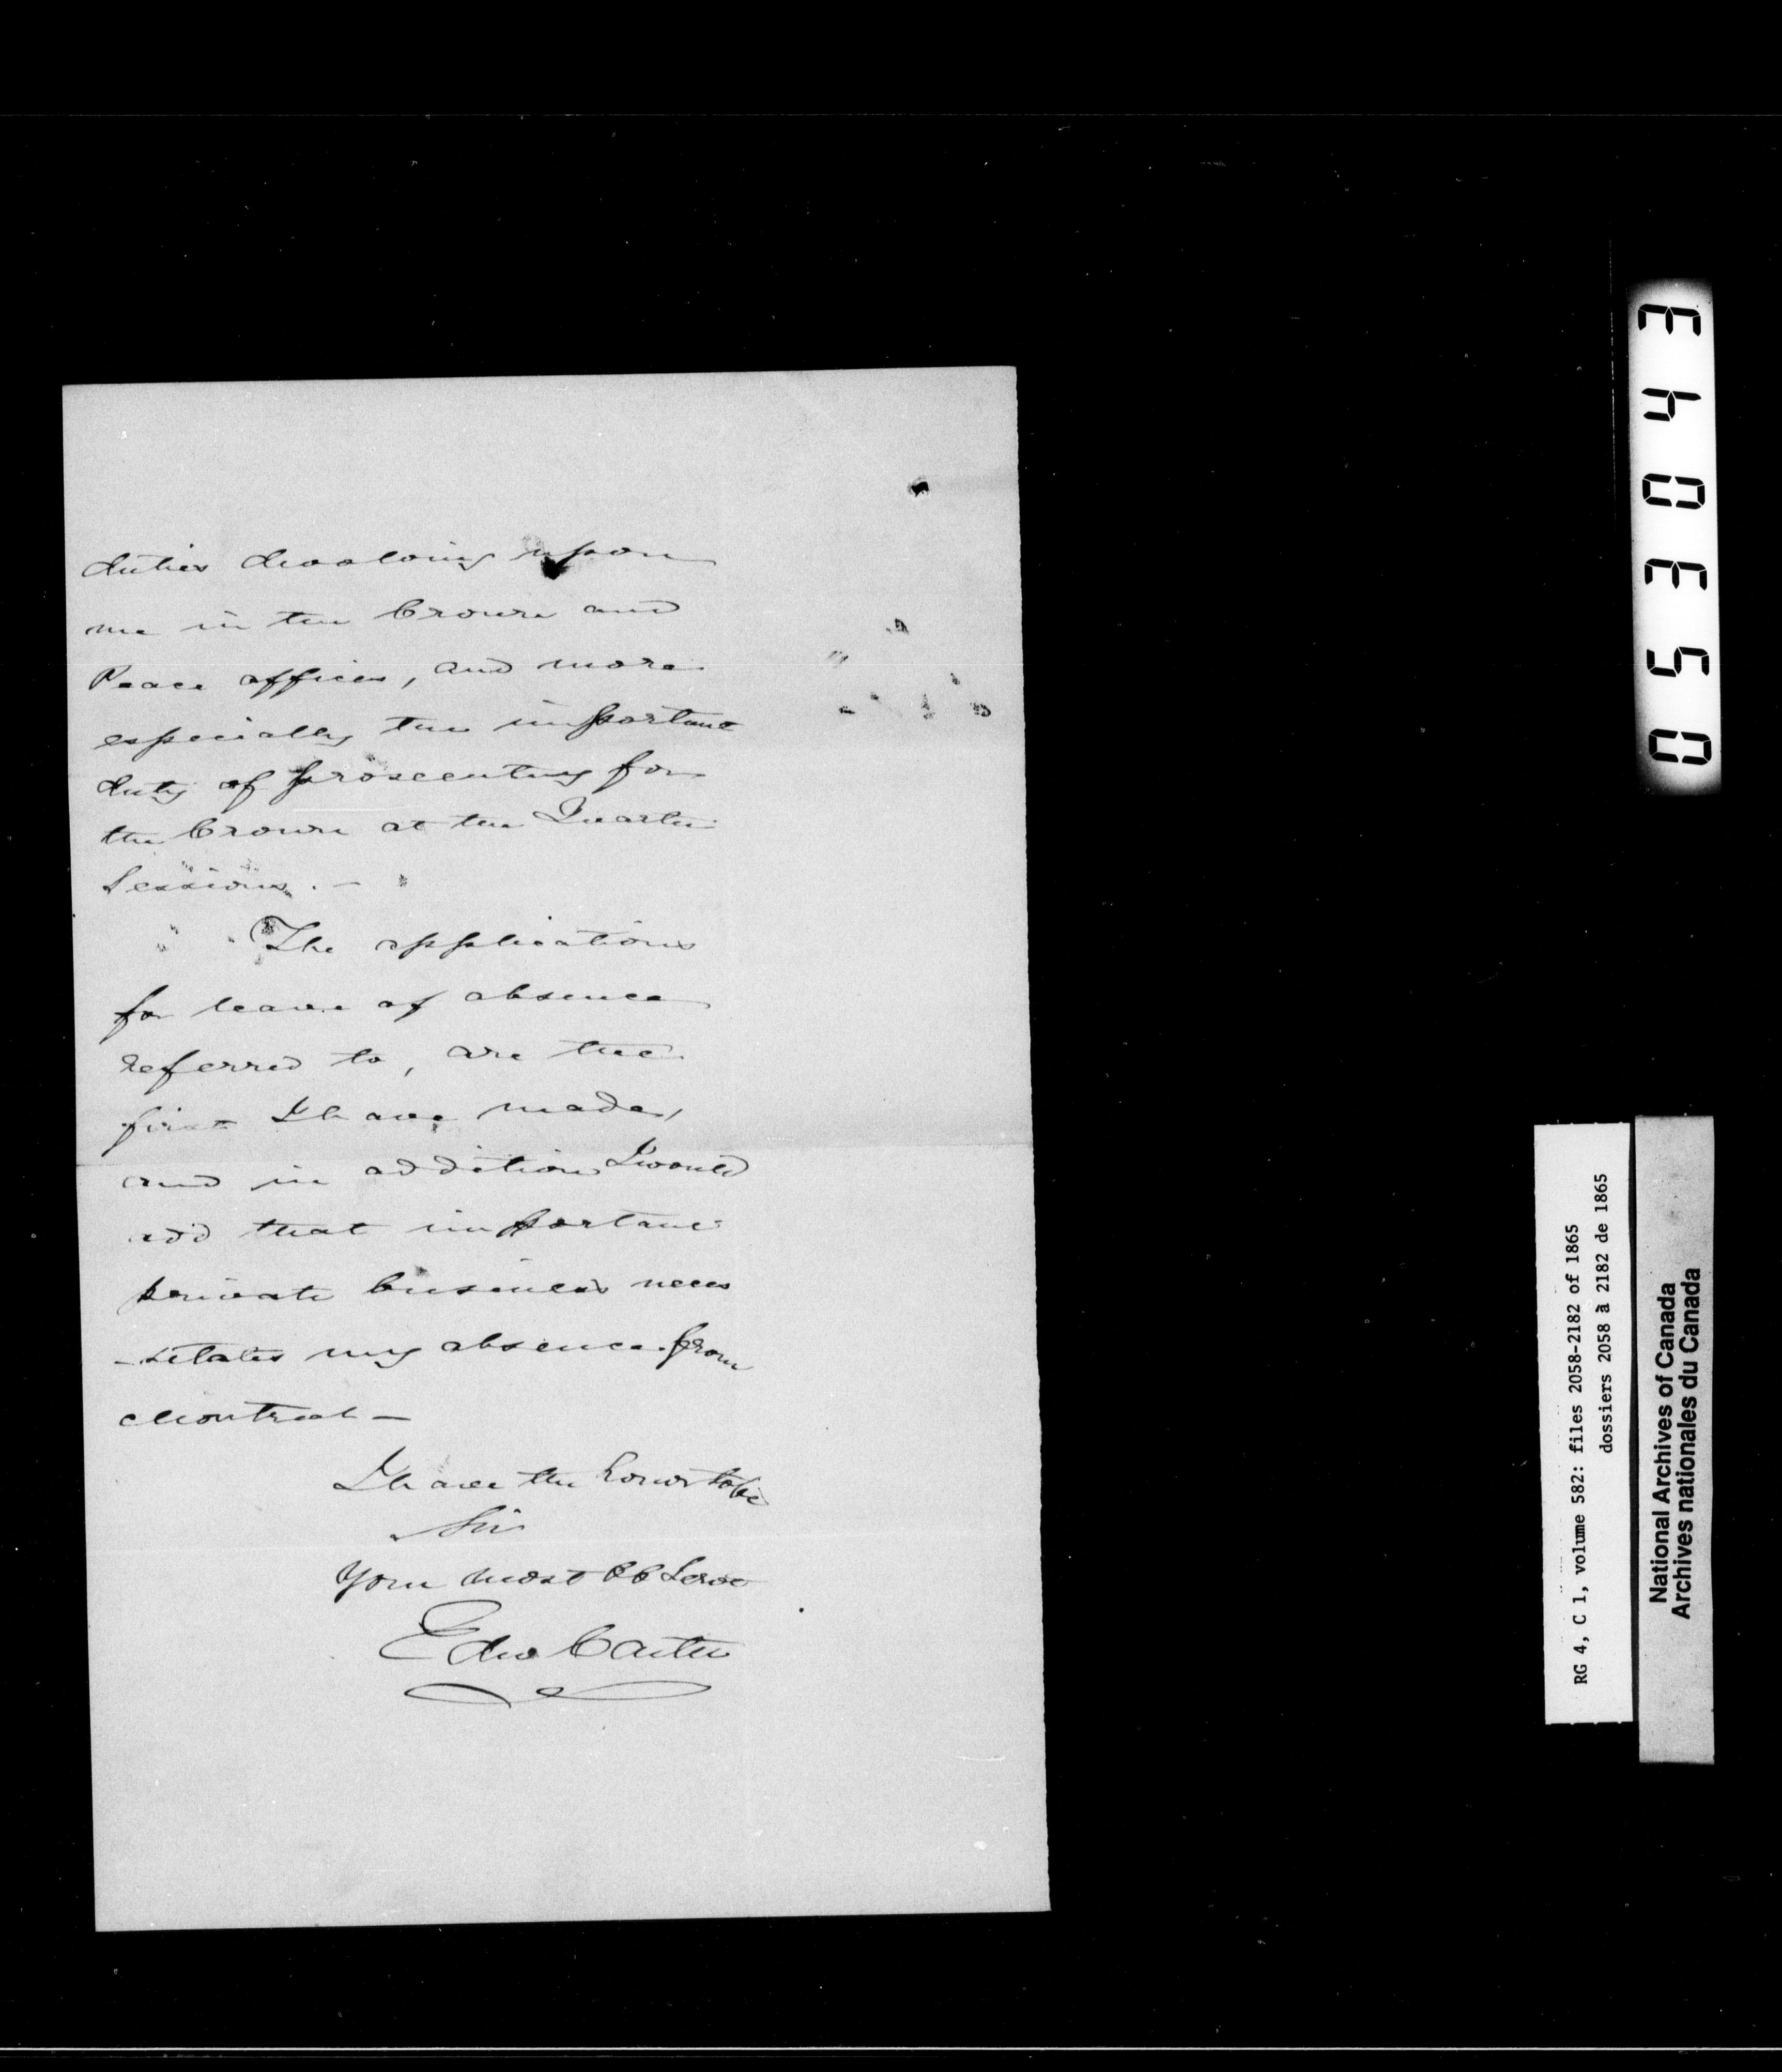 duties devolving upon
me in the Crown and
Peace offices, and more
especially the important
duty of prosecuting for
the Crown at the Quarter
Sessions. —
The applications
for leave of absence
referred to, are the
first I have made,
and in addition I would
add that important
private business neces
-sitates my absence from
Montreal —
I have the honor to be
Sir
Your most Ob Servt
Edw Carter
053043
RG 4, C 1, volume 582: files 2058-2182 of 1865
dossiers 2058 à 2182 de 1865
National Archives of Canada
Archives nationales du Canada